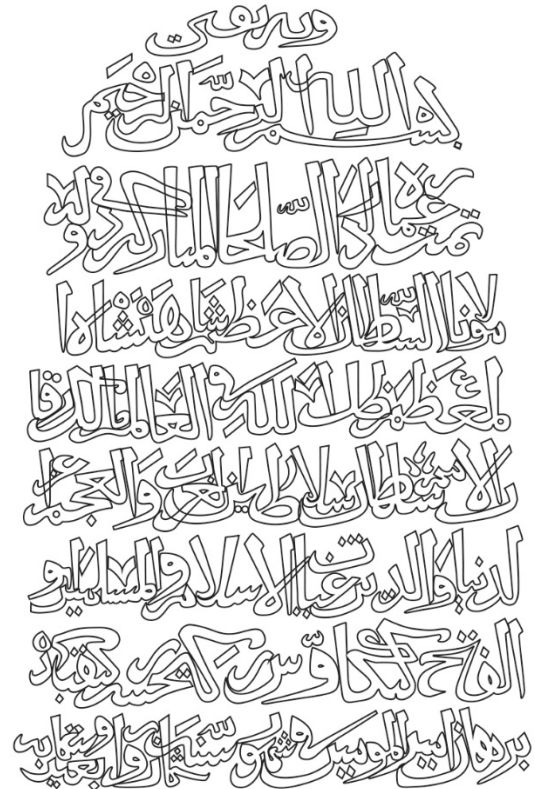 وبه ثقتي
بسم الله الرحمن الرحيم
المباركة
مولانا السلطان الاعظم شاهنشاه ا
لمعظم ظل الله في العالم مالك رقا
ب الامم سلاطين العرب والعجم عز
الدنيا والدين غياث الاسلام والمسلمين ابو
الفتح كيكاوس بن كيخسرو بن كيقباد
برهان امير المومنين في شهور سنة ثمان واربعين وستمايه